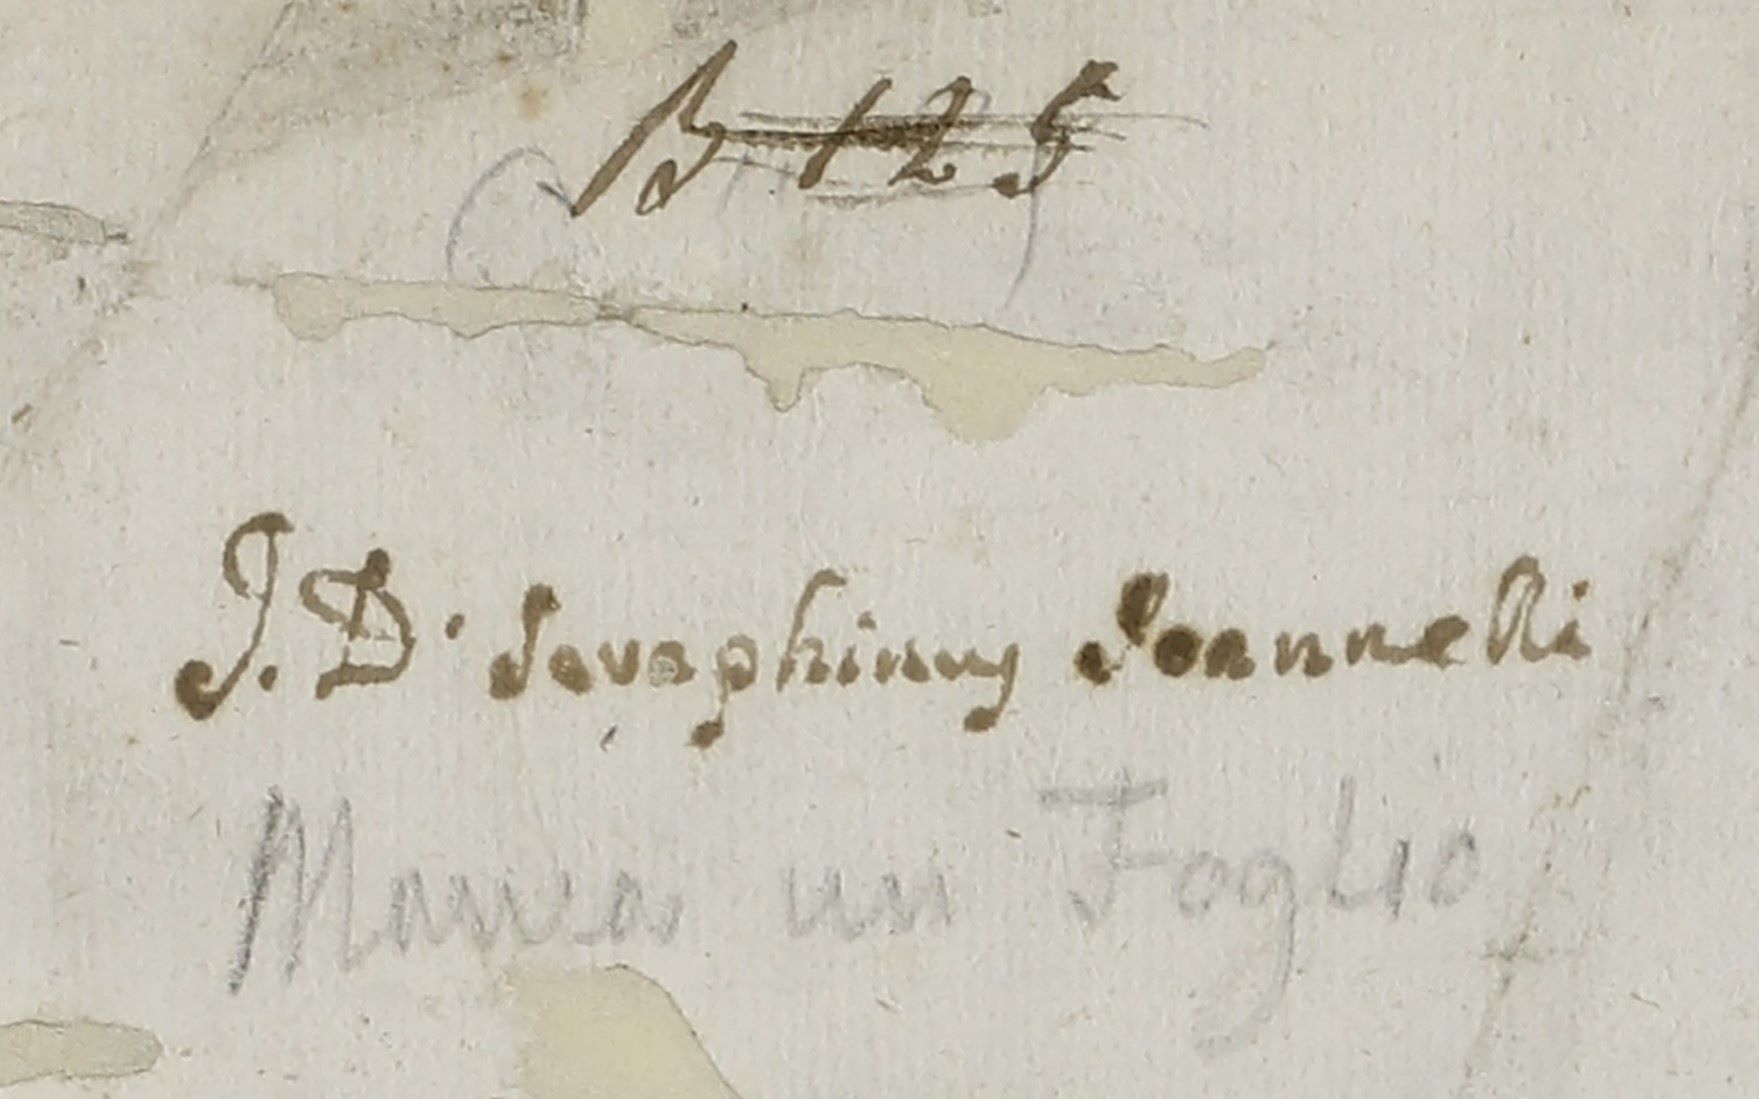 B 125
J. D. Seraphinus Joannelli
Manca un Foglio